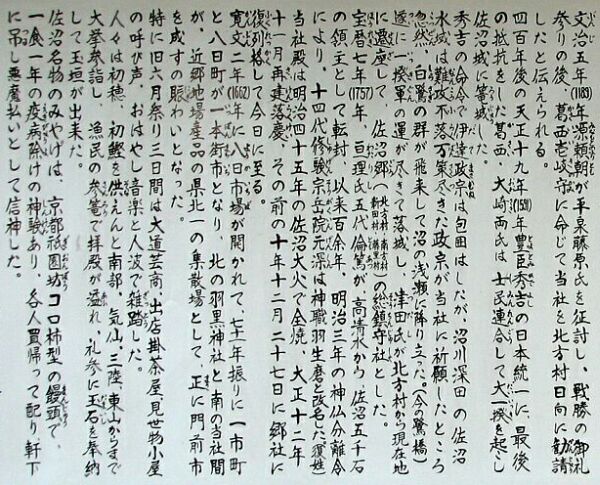 文治五年(1189)源頼朝が平泉藤原氏を征討し、戦勝の御礼
参りの後、葛西壱岐守に命じて当社を北方村日向に勧請
したと伝えられる。
四百年後の天正十九年(1591)豊臣秀吉の日本統一に、最後
の抵抗をした葛西、大崎両氏は、士民連合して大一揆を起こし
佐沼城に篭城した。
秀吉の命令で伊達政宗は包囲はしたが、沼川深田の佐沼
水城は難攻不落万策尽きた政宗が当社に祈願したところ
忽然、白鷺の群が飛来して沼の浅瀬に降り立った。(今の鷺橋)
遂に一揆軍の運が尽きて落城し、津田氏が北方村から現在地
に遷座して、佐沼郷(北方村 南方村 新田村)の総鎮守社とした。
宝暦七年(1757)亘理氏五代倫篤が、高清水から、佐沼五千石
の領主として転封、以来百余年、明治三年の神仏分離令
により、十四代修験宗岳院元深は神職羽生磨と改毛した(復姓)
当社殿は明治四十五年の佐沼大火で全焼、大正十二年
十一月再建落慶、その前の十年十二月二十七日に郷社に
復列格して今日に至る。
寛文二年(1662)に八日市場が開かれて、七十一年振りに一市町
と八日町が一本街市となり、北の羽黒神社と南の当社間
が、近郷地場産品の県北一の集散場として、正に門前市
を成すの賑わいとなった。
特に旧六月祭り三日間は大道芸商、出店掛茶屋見世物小屋
の呼び声、おはやし音楽と人波で雑踏した。
人々は初穂、初鰹を供えんと南部、気仙、三陸、東山からまで
大挙参詣し、漁民の参篭で拝殿が溢れ、礼参に玉石を奉納
して玉垣が出来た。
佐沼名物のみやげは、京都祇園坊コロ柿型の饅頭で、
一食一年の疫病除けの神験あり、各人買帰って配り、軒下
に吊し悪魔払いとして信神した。